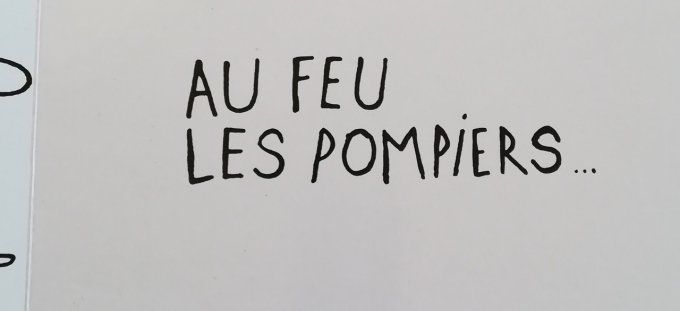 AU FEU
LES POMPiERS...